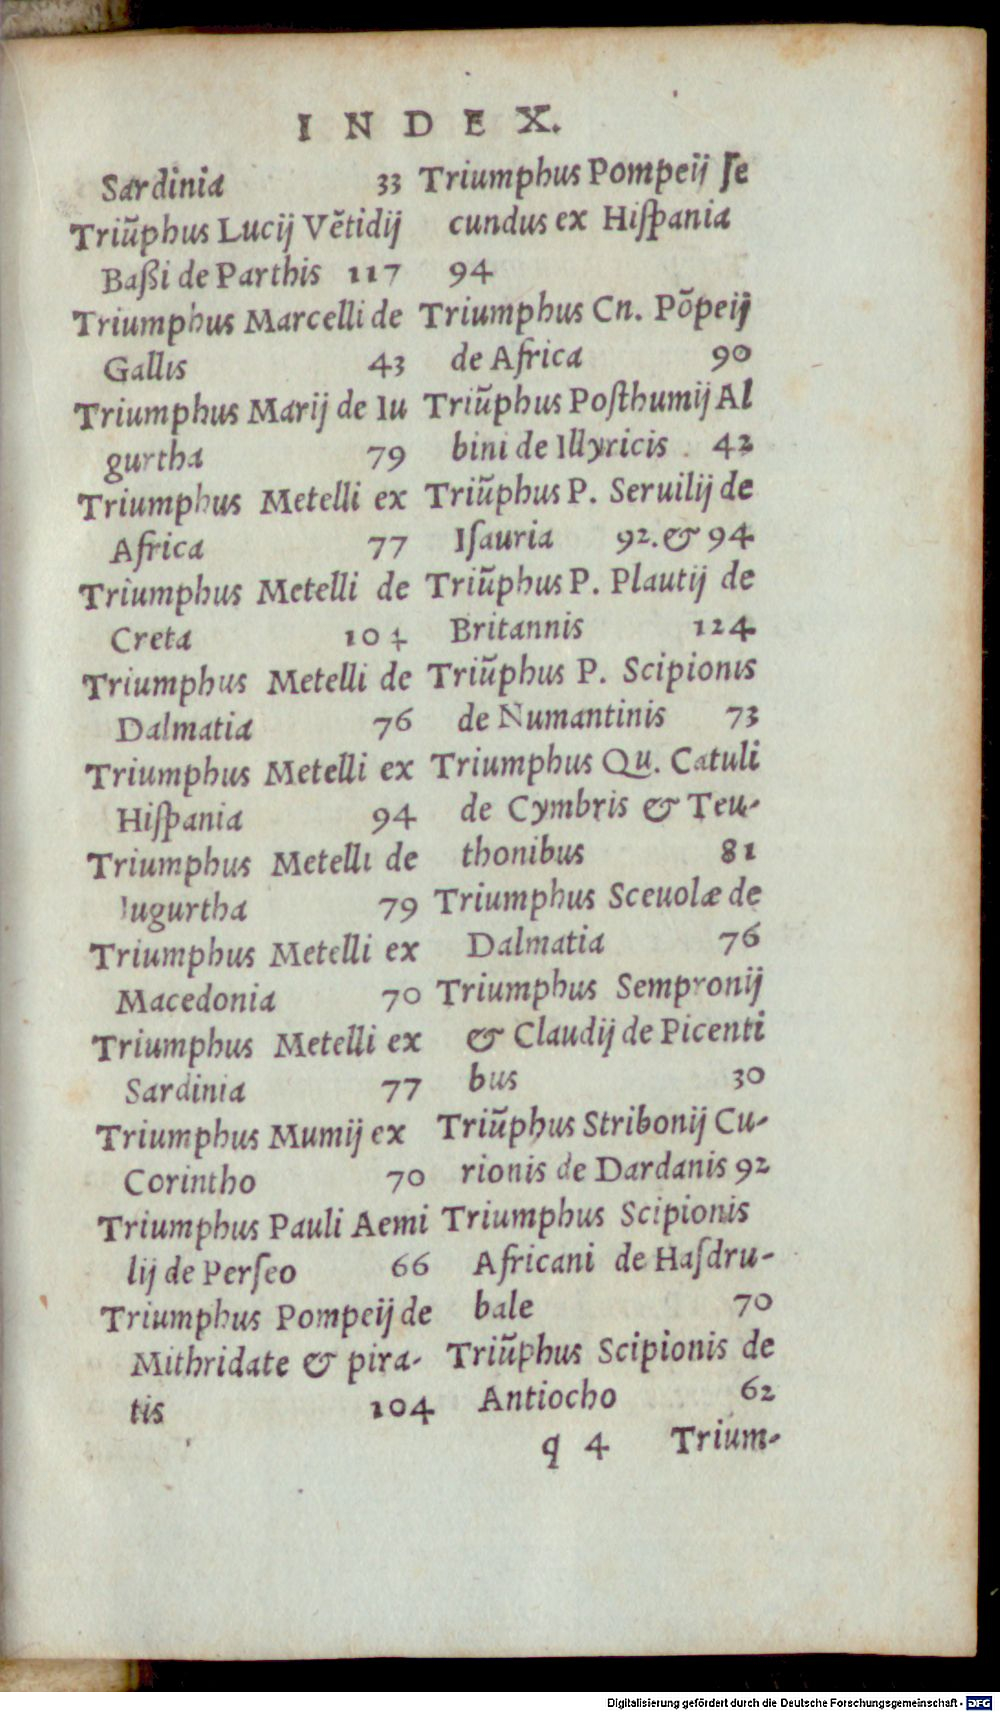 INDEX.
Sardinia 33
Triũphus Lucij Vẽtidij
Baßi de Parthis 117
Triumphus Marcelli de
Gallis 43
Triumphus Marij de Iu
gurtha 79
Triumphus Metelli ex
Africa 77
Triumphus Metelli de
Creta 104
Triumphus Metelli de
Dalmatia 76
Triumphus Metelli ex
Hiſpania 94
Triumphus Metelli de
Iugurtha 79
Triumphus Metelli ex
Macedonia 70
Triumphus Metelli ex
Sardinia 77
Triumphus Mumij ex
Corintho 70
Triumphus Pauli Aemi
lij de Perſeo 66
Triumphus Pompeij de
Mithridate & pira-
tis 104
Triumphus Pompeij ſe
cundus ex Hiſpania
94
Triumphus Cn. Põpeij
de Africa 90
Triũphus Poſthumij Al
bini de Illyricis 42
Triũphus P. Seruilij de
Iſauria 92. & 94
Triũphus P. Plautij de
Britannis 124
Triũphus P. Scipionis
de Numantinis 73
Triumphus Qu. Catuli
de Cymbris & Teu-
thonibus 81
Triumphus Sceuolæ de
Dalmatia 76
Triumphus Sempronij
& Claudij de Picenti
bus 30
Triũphus Stribonij Cu-
rionis de Dardanis 92
Triumphus Scipionis
Africani de Haſdru-
bale 70
Triũphus Scipionis de
Antiocho 62
q 4 Trium-
Digitalisierung gefördert durch die Deutsche Forschungsgemeinschaft - DFG